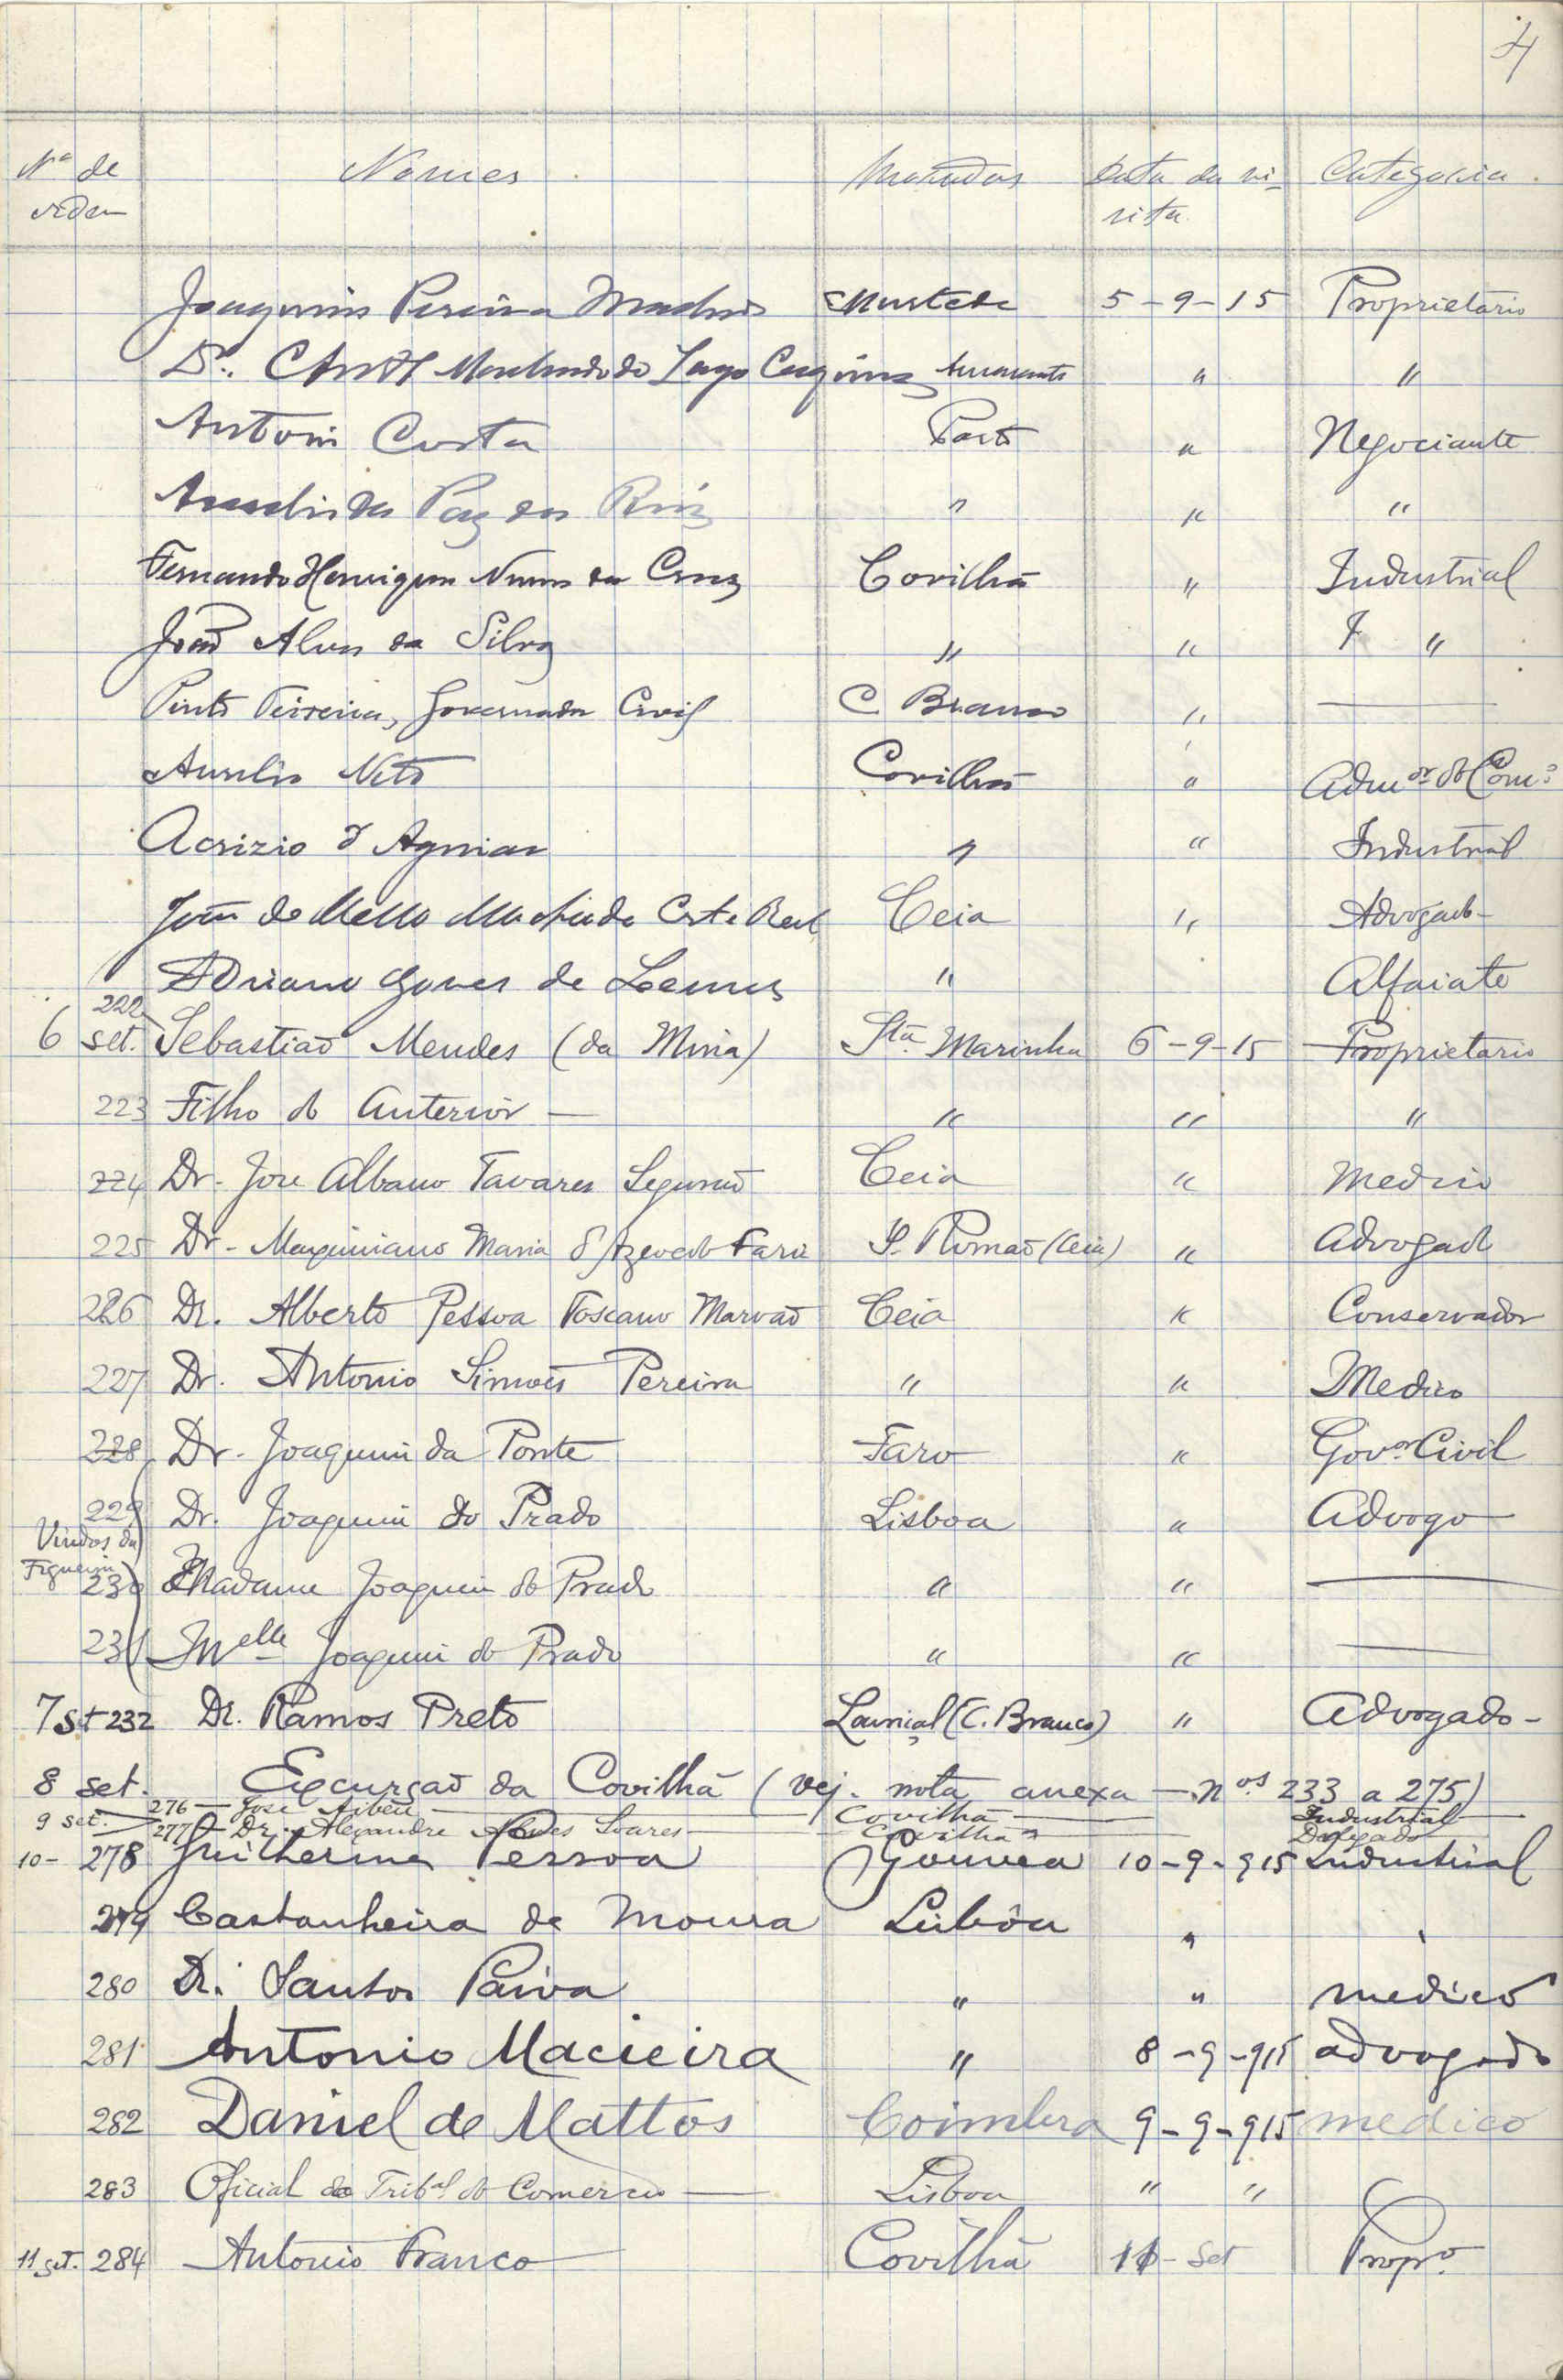 4
Nº de Nomes Moradas Data da vi-
ordem sita Categoria
Joaquim Pereira 5-9-15 Proprietario
Dr. Machado do Lago Amarante " "
Antonio Costa Porto " Negociante
da Paz dos " " "
Fernando Henriques Nunes da Cruz Covilhã " Industrial
João Alves da Silva " " "
Pinto Teixeira, Governador Civil C. Branco " —
Aurelio Neto Covilhã " Admor do Com?
Acrizio d'Aguiar " " Industrial
João de Mello Machado Corte Real Ceia " Advogado
Adriano Gomes de Lemos " Alfaiate
6 set. 222 Sebastião Mendes (da Mina) Sta. Marinha 6-9-15 Proprietario
223 Filho do Anterior — " " "
224 Dr. Jose Albano Tavares Ceia " Medico
225 Dr. Maximiano Maria d'Azevedo Faria S. Romão (Ceia) " Advogado
226 Dr. Alberto Pessoa Toscano Marvão Ceia " Conservador
227 Dr. Antonio Simões Pereira " " Medico
228 Dr. Joaquim da Ponte Faro " Govor Civil
229 Dr. Joaquim do Prado Lisboa " Advogo
Vindos da
Figueira
230 Madame Joaquim do Prado " " —
231 Melle Joaquim do Prado " " —
7 set 232 Dr. Ramos Preto Louriçal (C. Branco) " Advogado
8 set. Excursão da Covilhã (vej. nota anexa — nos 233 a 275)
9 set. 276 — José Covilhã — Industrial
277 — Dr. Alexandre Alves Soares — Covilhã — Delegado
10 - 278 Guilherme Pessoa Gouvea 10-9-915 Industrial
279 Castanheira de Moura Lisbôa " "
280 Dr. Santos Paiva " " medico
281 Antonio Macieira " 8-9-915 advogado
282 Daniel de Mattos Coimbra 9-9-915 medico
283 Oficial do Tribal do Comercio — Lisboa " "
11 set. 284 Antonio Franco Covilhã 11 - Set Propro